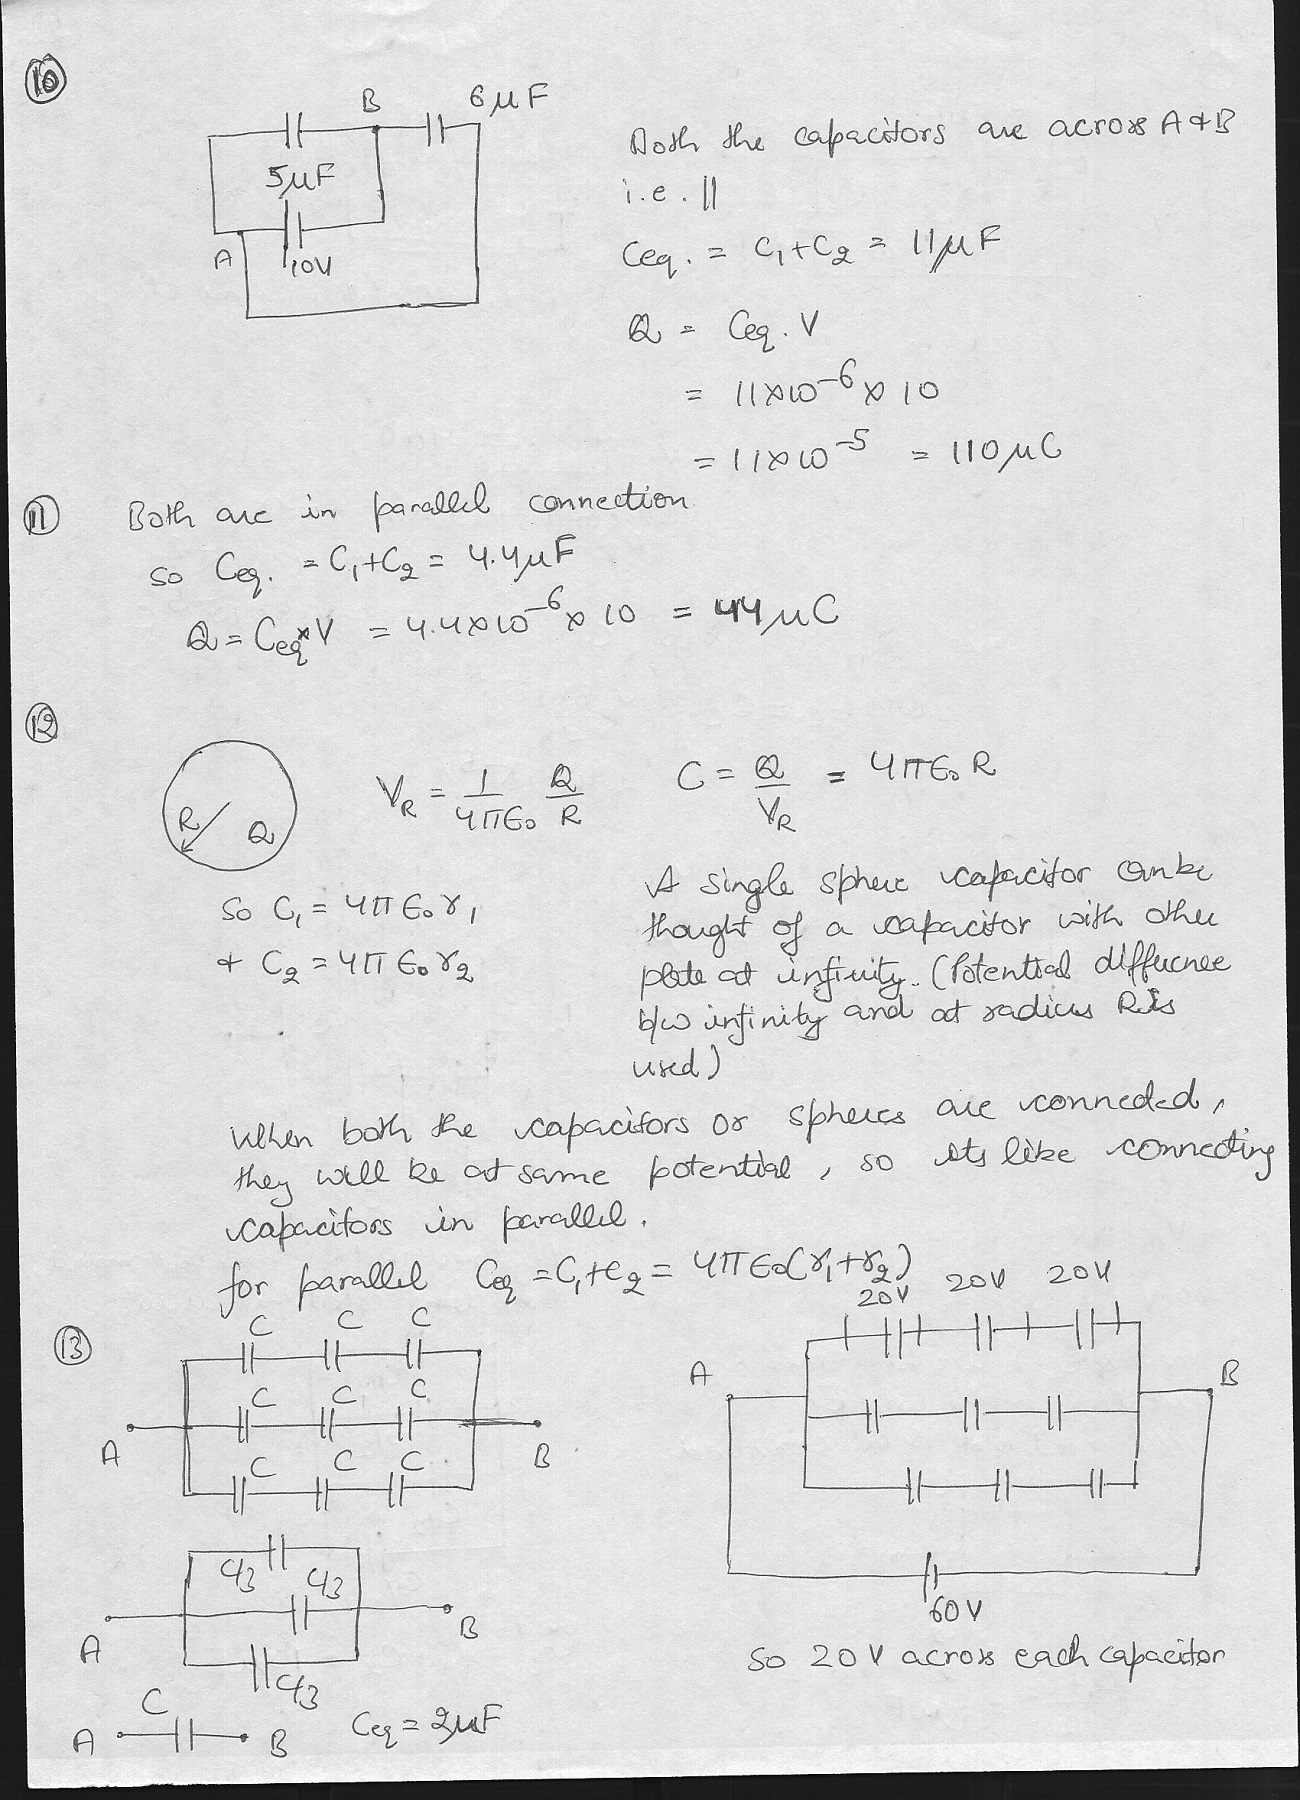 10
B 6μF
5μF
A 10V
Both the capacitors are across A & B
i.e. ||
Ceq. = C₁+C₂ = 11μF
Q = Ceq. V
= 11×10⁻⁶ × 10
= 11×10⁻⁵ = 110μC
11 Both are in parallel connection
so Ceq. = C₁+C₂ = 4.4μF
Q = Ceq×V = 4.4×10⁻⁶ × 10 = 44μC
12
R Q
V_R = 1/4πε₀ Q/R C = Q/V_R = 4πε₀ R
so C₁ = 4πε₀r₁
& C₂ = 4πε₀r₂
A single sphere capacitor can be
thought of a capacitor with other
plate at infinity. (Potential difference
b/w infinity and at radius R is
used)
When both the capacitors or spheres are connected,
they will be at same potential, so its like connecting
capacitors in parallel.
for parallel Ceq = C₁+C₂ = 4πε₀(r₁+r₂)
13
C C C
C C C
A B
C C C
C/3 C/3
A B
C/3
C
A B Ceq = 2μF
20V 20V 20V
A B
60V
so 20V across each capacitor